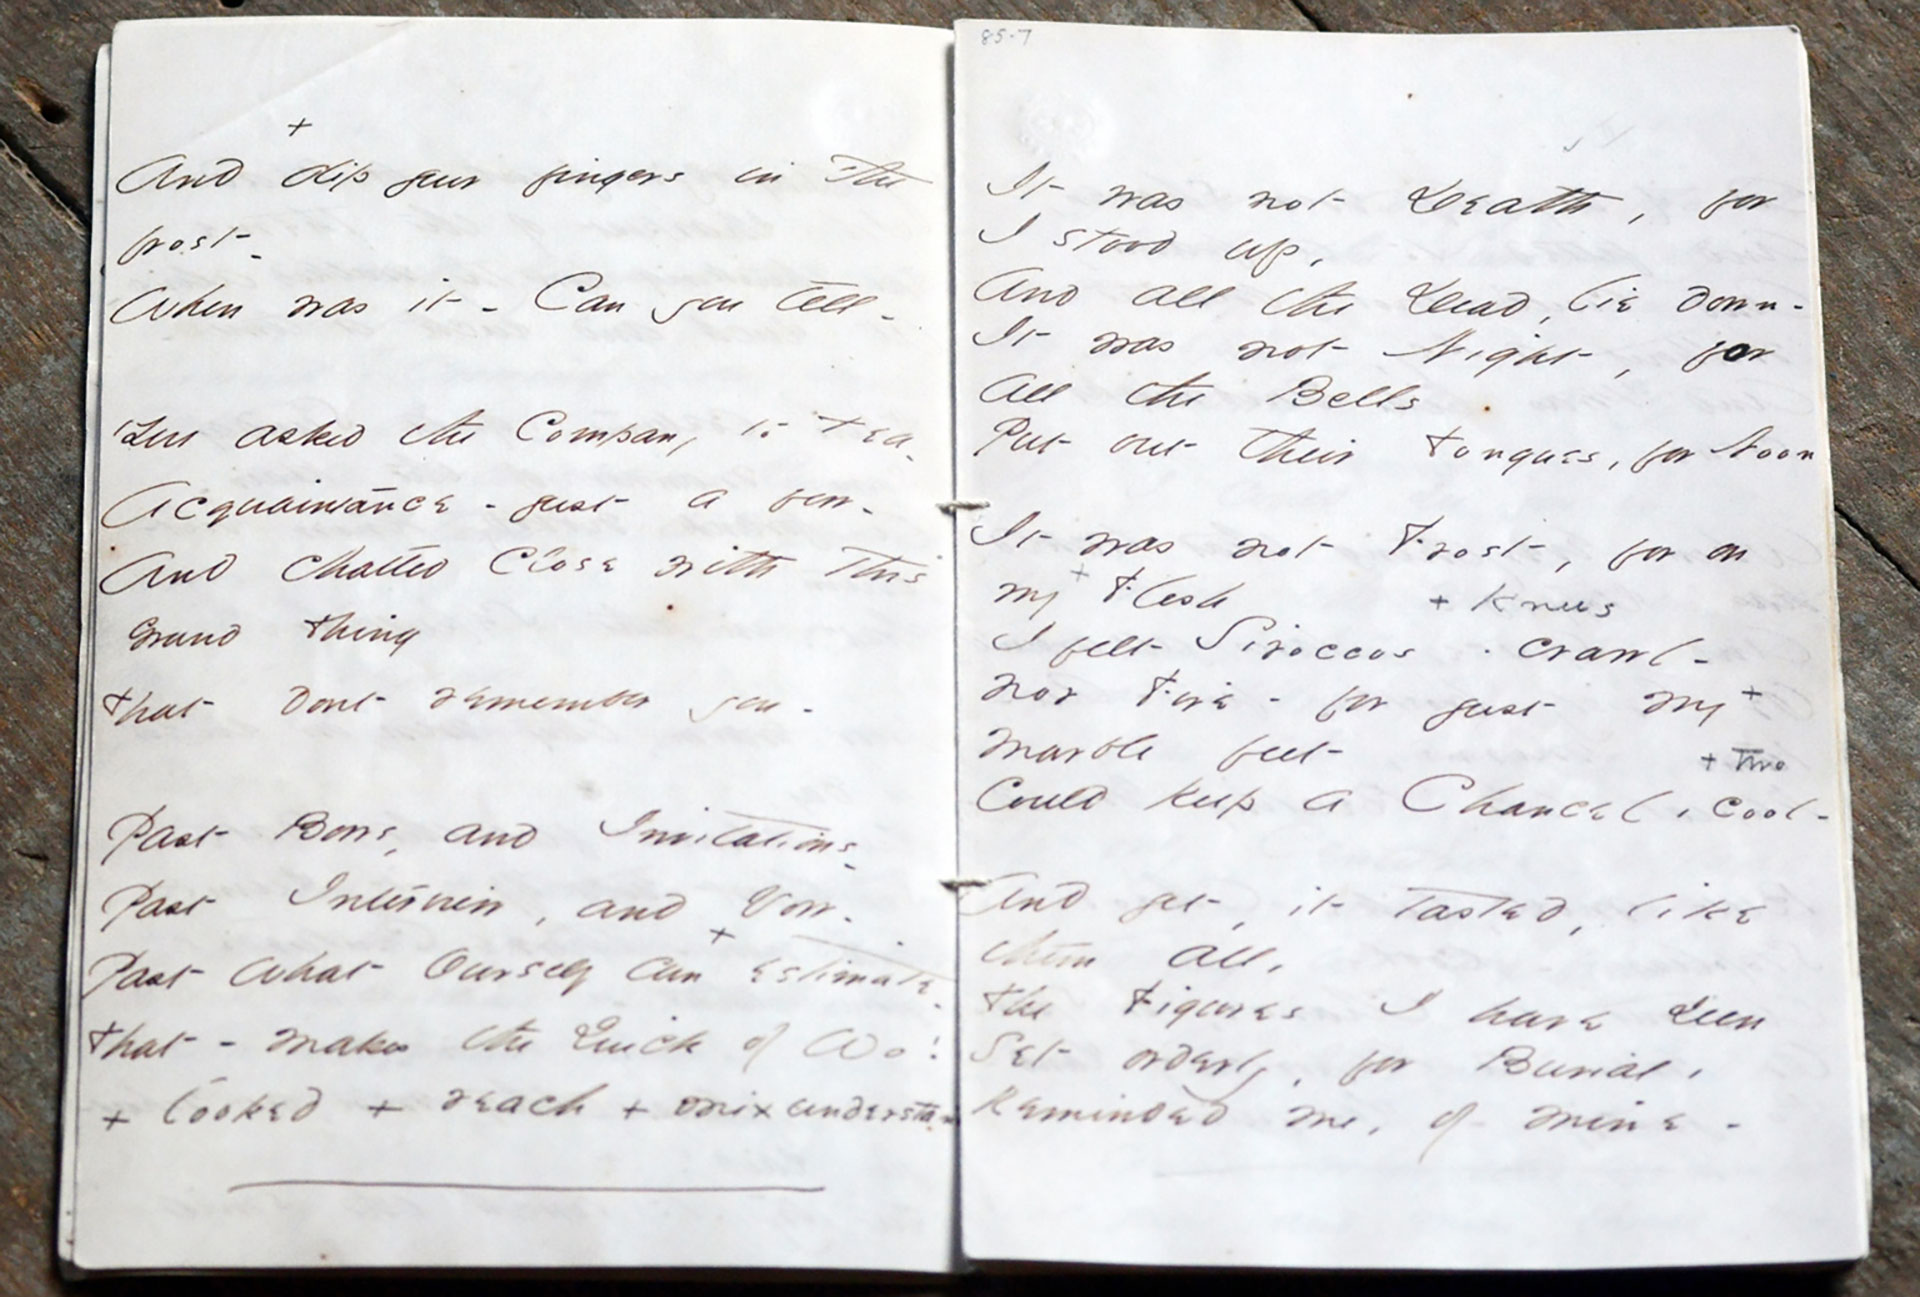 +
And dip your fingers in the
frost -
When was it - Can you tell -
You asked the Company to tea -
Acquaintance - just a few -
And chatted close with this
Grand thing
That dont remember you -
Past Bows, and Invitations -
Past Interview, and Vow -
+
Past what Ourself can estimate -
That - makes the Quick of Wo!
+ looked + reach + mix understan
85-7
It was not Death, for
I stood up,
And all the Dead, lie down -
It was not Night, for
all the Bells
Put out their Tongues, for Noon
It was not Frost, for on
my + Flesh + Knees
I felt Siroccos - crawl -
Nor Fire - for just my +
marble feet + Two
Could keep a Chancel, cool -
And yet, it tasted, like
them all,
The Figures I have seen
Set orderly, for Burial,
Reminded me, of mine -